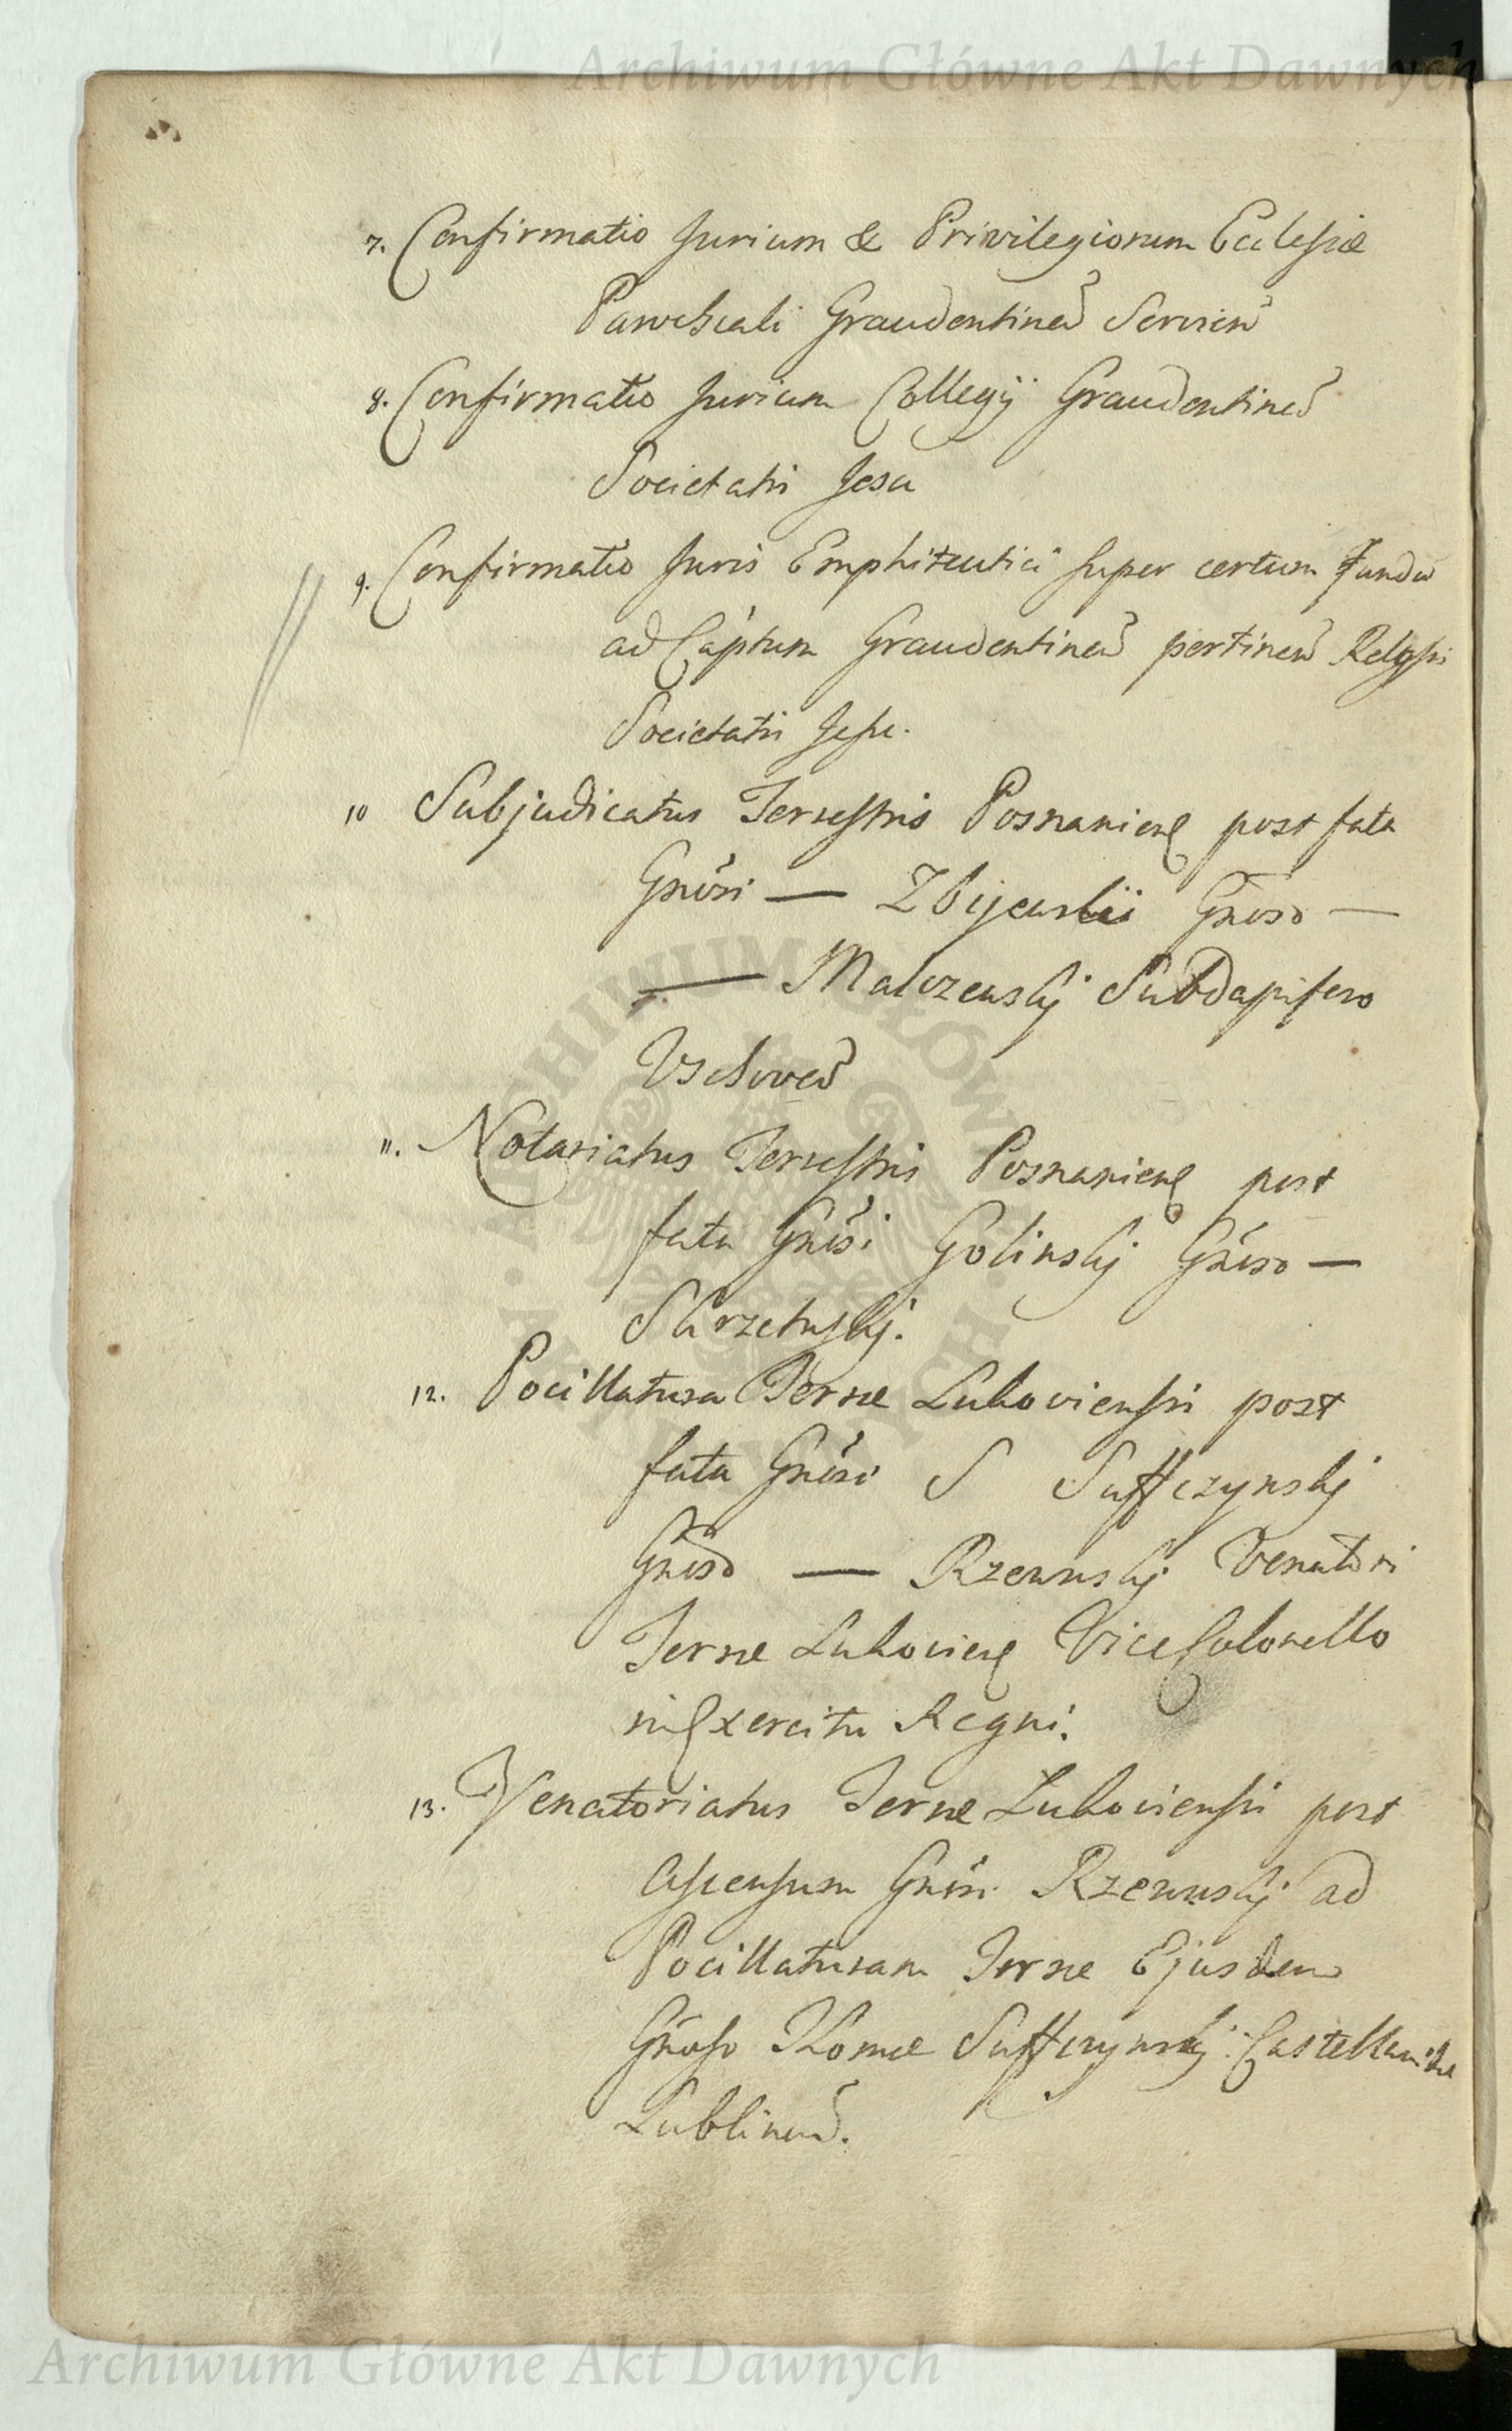 Archiwum Główne Akt Dawnych
7. Confirmatio Jurium & Privilegiorum Ecclesiæ
Parochiali Graudentinen Servien
8. Confirmatio Jurium Collegij Graudentinen
Societatis Jesu
9. Confirmatio Juris Emphiteutici super certum Fundu
ad Captum Graudentinen pertinen
Societatis Jesu.
10 Subjudicatus Terrestris Posnaniens post fata
Gnosi — Zbijewskii Gnoso —
— Malczewskj Subdapifero
Vschoven
11. Notariatus Terrestris Posnaniens post
fata Gnosi Golinskj Gnoso —
Skrzetuskj.
12. Pocillatura Terræ Lukoviensis post
fata Gnosi S Suffczynskj
Gnoso — Rzewuskj Venatori
Terræ Lukoviens Vice Colonello
in Exercitu Regni.
13. Venatoriatus Terræ Lukoviensis post
Ascensum Gnosi Rzewuskj ad
Pocillaturam Terræ Ejusdem
Gnoso Komæ Suffczynskj Castellanidæ
Lublinen.
Archiwum Główne Akt Dawnych